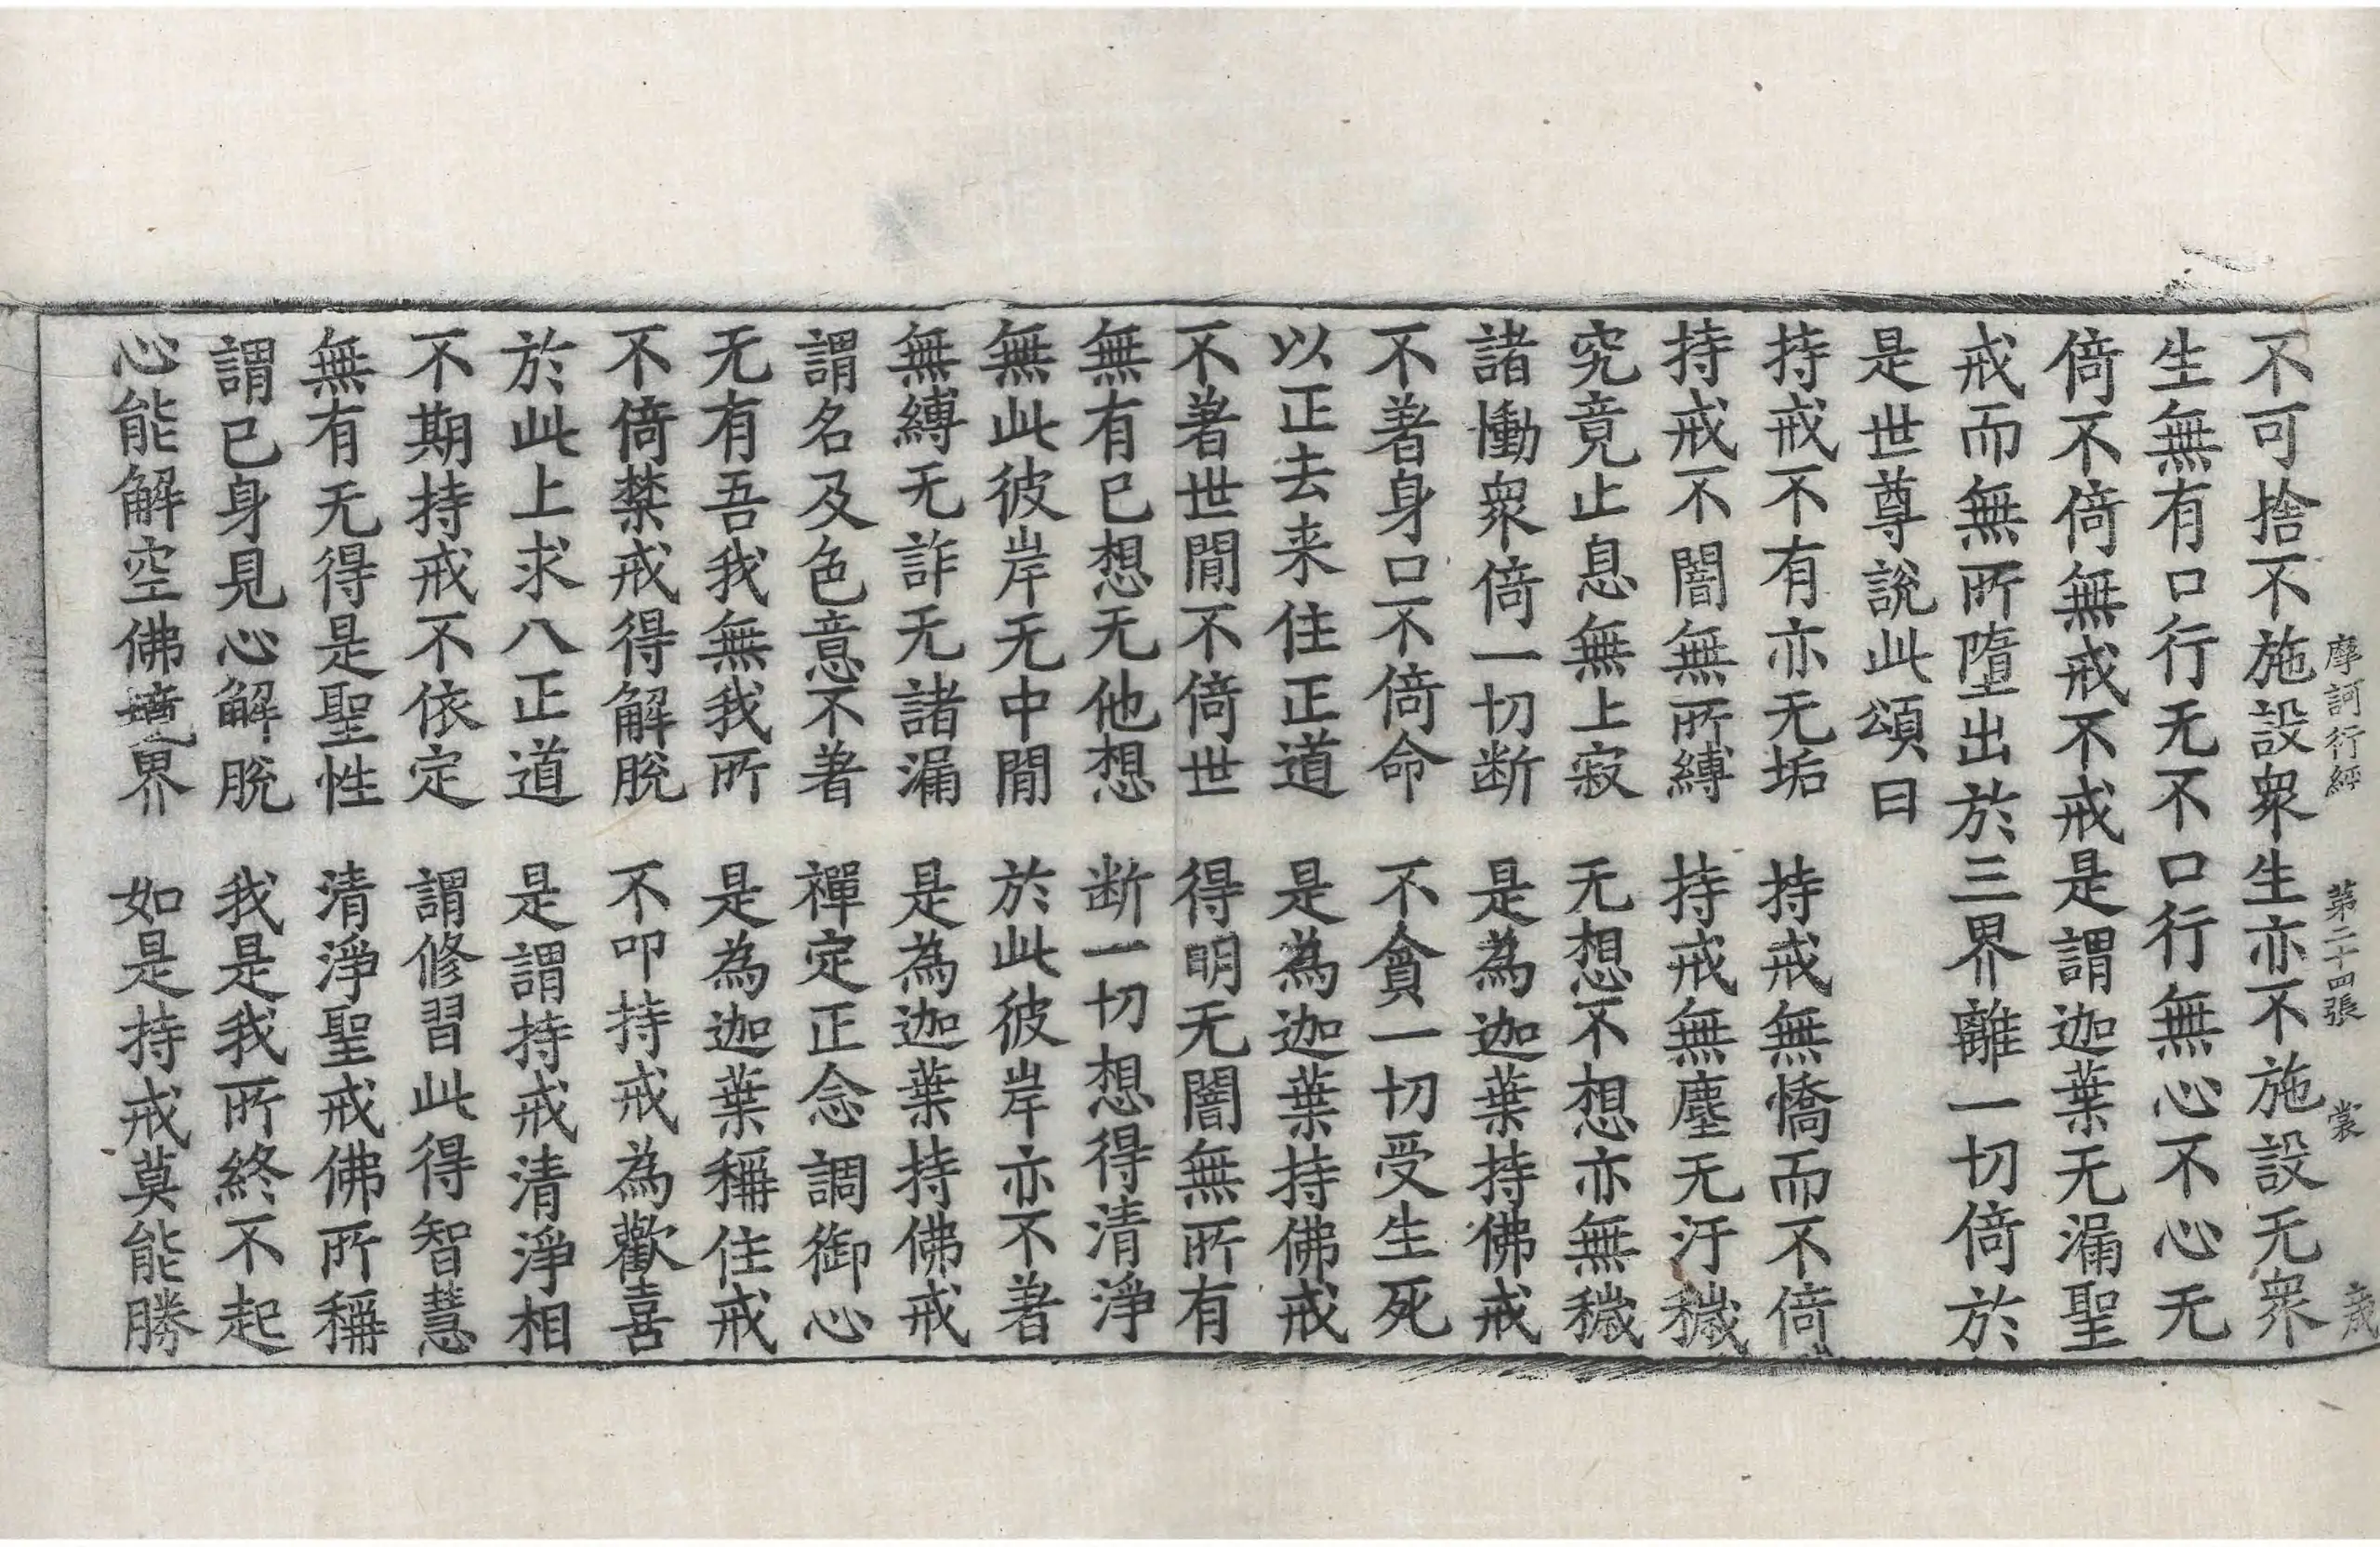 摩訶衍經 第二十四張 裳
不可捨不施設衆生亦不施設无衆
生無有口行无不口行無心不心无
倚不倚無戒不戒是謂迦葉无漏聖
戒而無所墮出於三界離一切倚於
是世尊說此頌曰
持戒不有亦无垢 持戒無憍而不倚
持戒不闇無所縛 持戒無塵无汙穢
究竟止息無上寂 无想不想亦無穢
諸慟衆倚一切断 是為迦葉持佛戒
不著身口不倚命 不貪一切受生死
以正去来住正道 是為迦葉持佛戒
不著世間不倚世 得明无闇無所有
無有已想无他想 断一切想得清淨
無此彼岸无中間 於此彼岸亦不著
無縛无詐无諸漏 是為迦葉持佛戒
謂名及色意不著 禪定正念調御心
无有吾我無我所 是為迦葉稱住戒
不倚禁戒得解脫 不叩持戒為歡喜
於此上求八正道 是謂持戒清淨相
不期持戒不依定 謂修習此得智慧
無有无得是聖性 清淨聖戒佛所稱
謂已身見心解脫 我是我所終不起
心能解空佛境界 如是持戒莫能勝